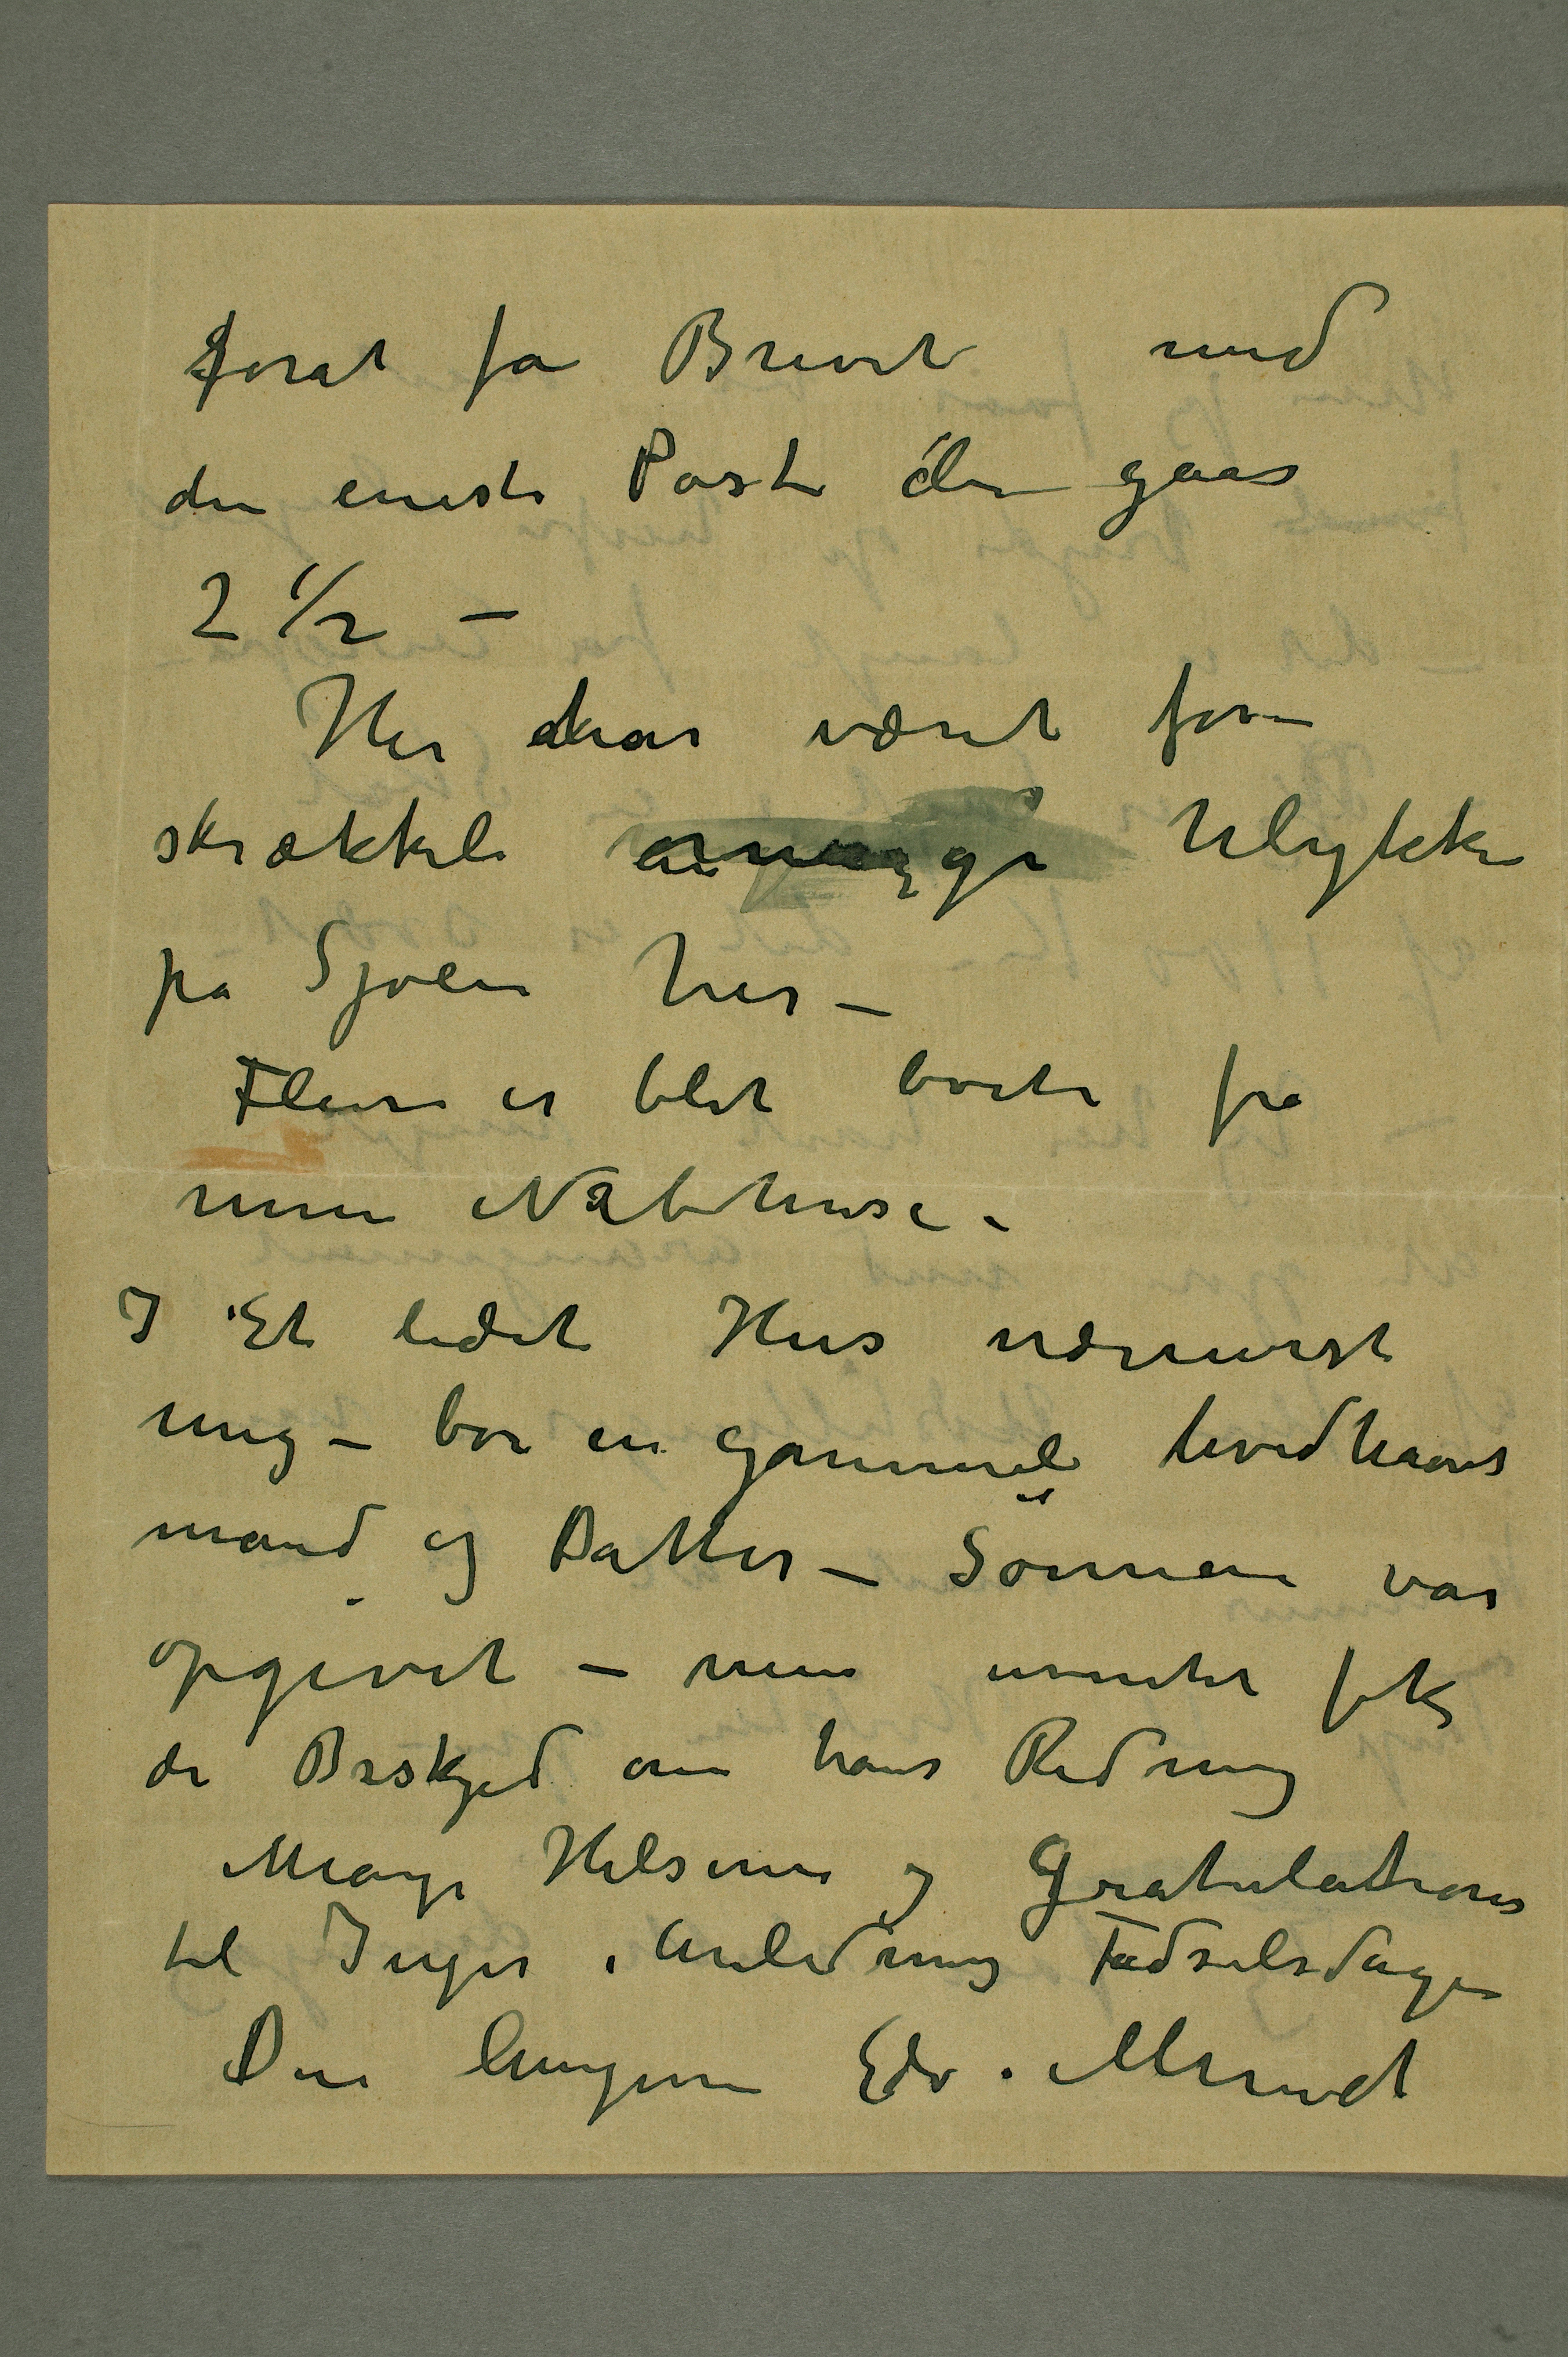 forat få Brevet med
den eneste Post der gaar
2 1/2 –
Her har været for-
skrækkeli Ulykke
på Sjøen her –
Flere er blet borte fra
mine Nabohuse.
I Et lidet Hus nærmest
mig – bor en gammel hvidhaaret
mand og Datter – Sönnen var
opgivet – men fik
de Beskjed om hans Redning
Mange Hilsener og Gratulationer
til Inger i Anledning Fødselsdagen
Din hengivne Edv. Munch